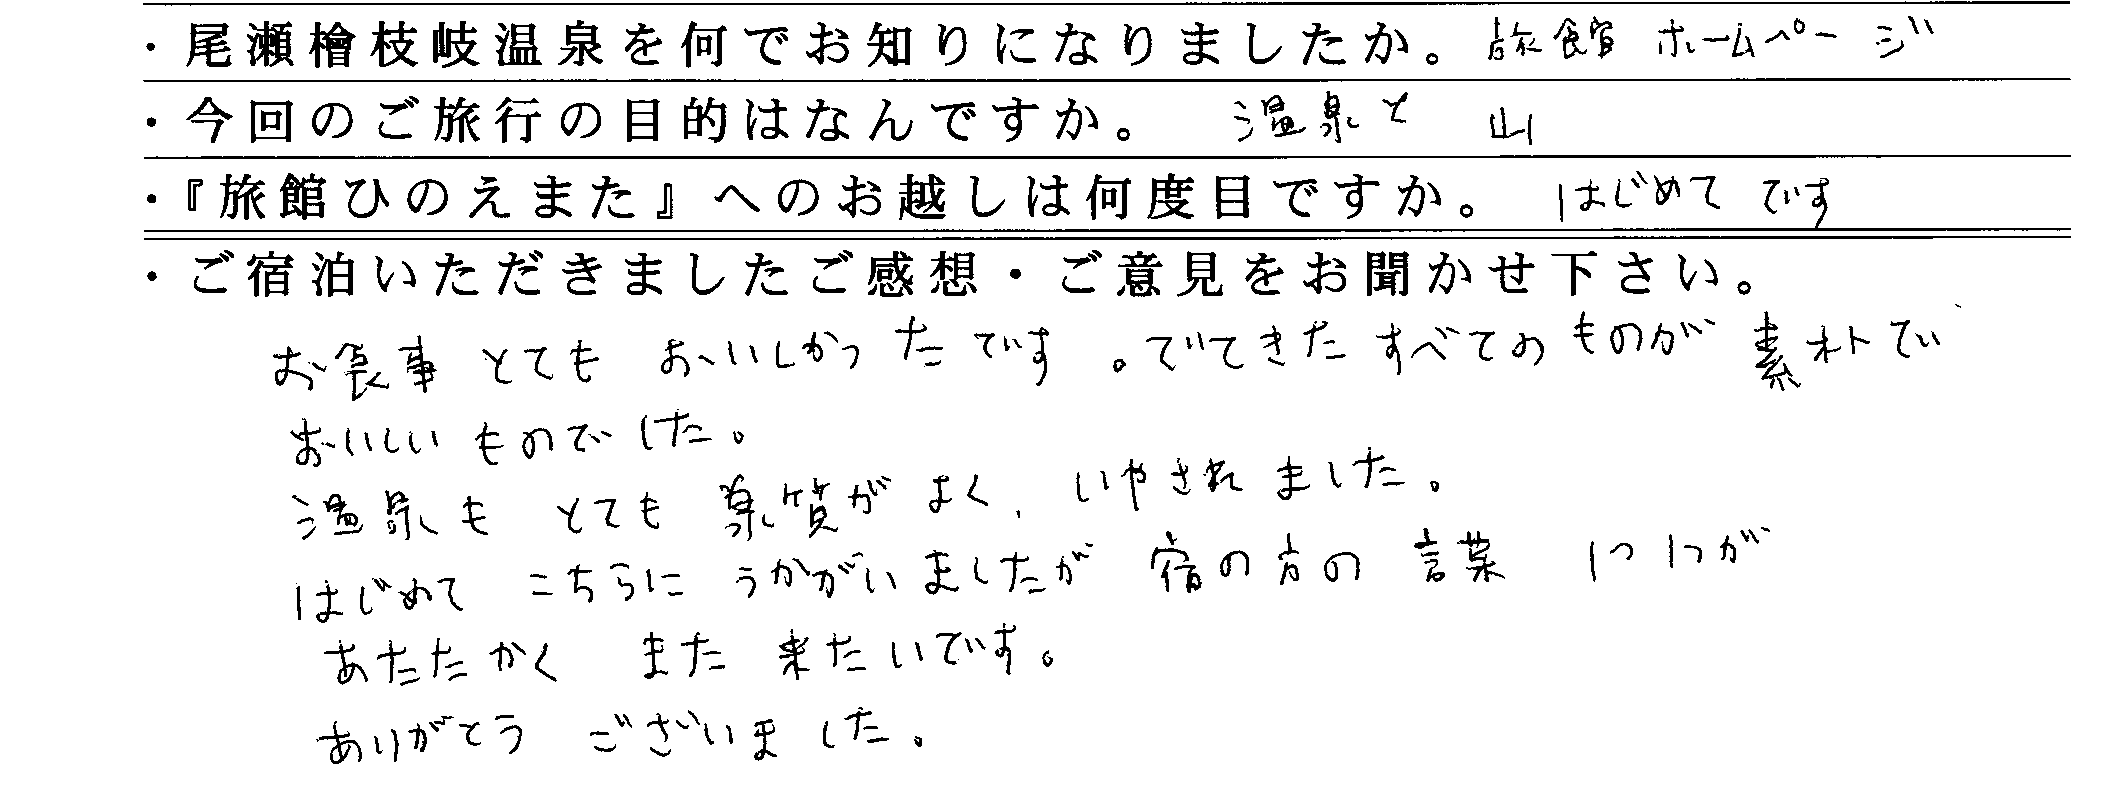 ・尾瀬檜枝岐温泉を何でお知りになりましたか。 旅館 ホームページ
・今回のご旅行の目的はなんですか。 温泉と 山
・『旅館ひのえまた』へのお越しは何度目ですか。 はじめて です
・ご宿泊いただきましたご感想・ご意見をお聞かせ下さい。
お食事 とても おいしかったです。でてきた すべての ものが 素朴で
おいしい ものでした。
温泉も とても 泉質が よく、いやされました。
はじめて こちらに うかがいましたが 宿の方の 言葉 1つ1つが
あたたかく また 来たいです。
ありがとう ございました。